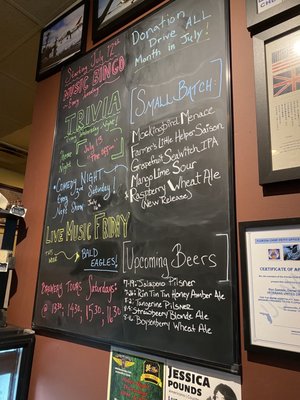 Starting July 17th
MUSIC BINGO
Every Sunday
TRIVIA
Theme
Night
July 13th
"The Office"
COMEDY NIGHT
Every 3rd Saturday!
Next Show
LIVE MUSIC FRIDAY
THIS WEEK
BALD
EAGLES!
BREWERY TOURS Saturdays:
@ 13:30, 14:30, 15:30, 16:30
Donation
Drive ALL
Month in July!
SMALL BATCH:
Mockingbird Menace
Farmer's Little Helper Saison
Grapefruit SeaWitch IPA
Mango Lime Sour
Raspberry Wheat Ale
(New Release)
Upcoming Beers
Jalapeno Pilsner
Rin Tin Tin Honey Amber Ale
Tangerine Pilsner
Strawberry Blonde Ale
Boysenberry Wheat Ale
JESSICA
POUNDS